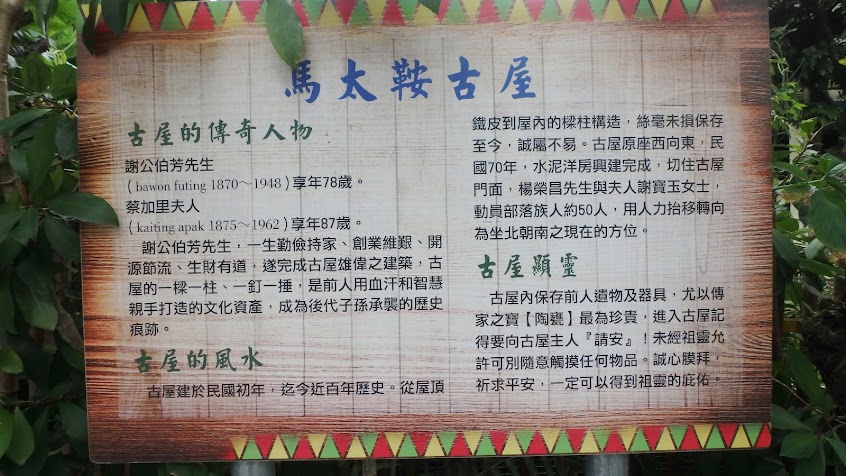 馬太鞍古屋
古屋的傳奇人物
謝公伯芳先生
(bawon futing 1870～1948)享年78歲。
蔡加里夫人
(kaiting apak 1875～1962)享年87歲。
謝公伯芳先生，一生勤儉持家、創業維艱、開
源節流、生財有道，遂完成古屋雄偉之建築，古
屋的一樑一柱、一釘一捶，是前人用血汗和智慧
親手打造的文化資產，成為後代子孫承襲的歷史
痕跡。
古屋的風水
古屋建於民國初年，迄今近百年歷史。從屋頂
鐵皮到屋內的樑柱構造，絲毫未損保存
至今，誠屬不易。古屋原座西向東，民
國70年，水泥洋房興建完成，切住古屋
門面，楊榮昌先生與夫人謝寶玉女士，
動員部落族人約50人，用人力抬移轉向
為坐北朝南之現在的方位。
古屋顯靈
古屋內保存前人遺物及器具，尤以傳
家之寶【陶甕】最為珍貴，進入古屋記
得要向古屋主人『請安』！未經祖靈允
許可別隨意觸摸任何物品。誠心膜拜，
祈求平安，一定可以得到祖靈的庇佑。